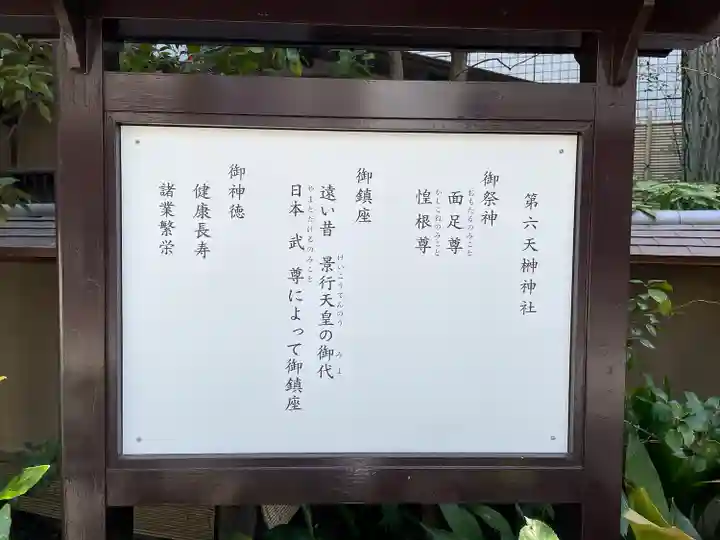 第六天榊神社
御祭神
面足尊
おもたるのみこと
惶根尊
かしこねのみこと
御鎮座
遠い昔 景行天皇の御代
けいこうてんのう みよ
日本武尊によって御鎮座
やまとたけるのみこと
御神徳
健康長寿
諸業繁栄